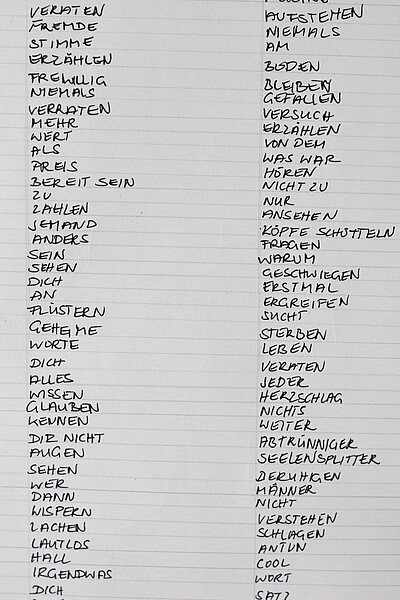 VERATEN
FREMDE
STIMME
ERZÄHLEN
FREWILLIG
NIEMALS
VERRATEN
MEHR
WERT
ALS
PREIS
BEREIT SEIN
ZU
ZAHLEN
JEMAND
ANDERS
SEIN
SEHEN
DICH
AN
FLÜSTERN
GEHEIME
WORTE
DICH
ALLES
WISSEN
GLAUBEN
KENNEN
DIR NICHT
AUGEN
SEHEN
WER
DANN
WISPERN
LACHEN
LAUTLOS
HALL
IRGENDWAS
DICH
AUFSTEHEN
NIEMALS
AM
BODEN
BLEIBEN
GEFALLEN
VERSUCH
ERZÄHLEN
VON DEM
WAS WAR
HÖREN
NICHT ZU
NUR
ANSEHEN
KÖPFE SCHÜTTELN
FRAGEN
WARUM
GESCHWIEGEN
ERSTMAL
ERGREIFEN
SUCHT
STERBEN
LEBEN
VERATEN
JEDER
HERZSCHLAG
NICHTS
WEITER
ABTRÜNNIGER
SEELENSPLITTER
DERUHIGEN
MÄNNER
NICHT
VERSTEHEN
SCHLAGEN
ANTUN
COOL
WORT
SATZ